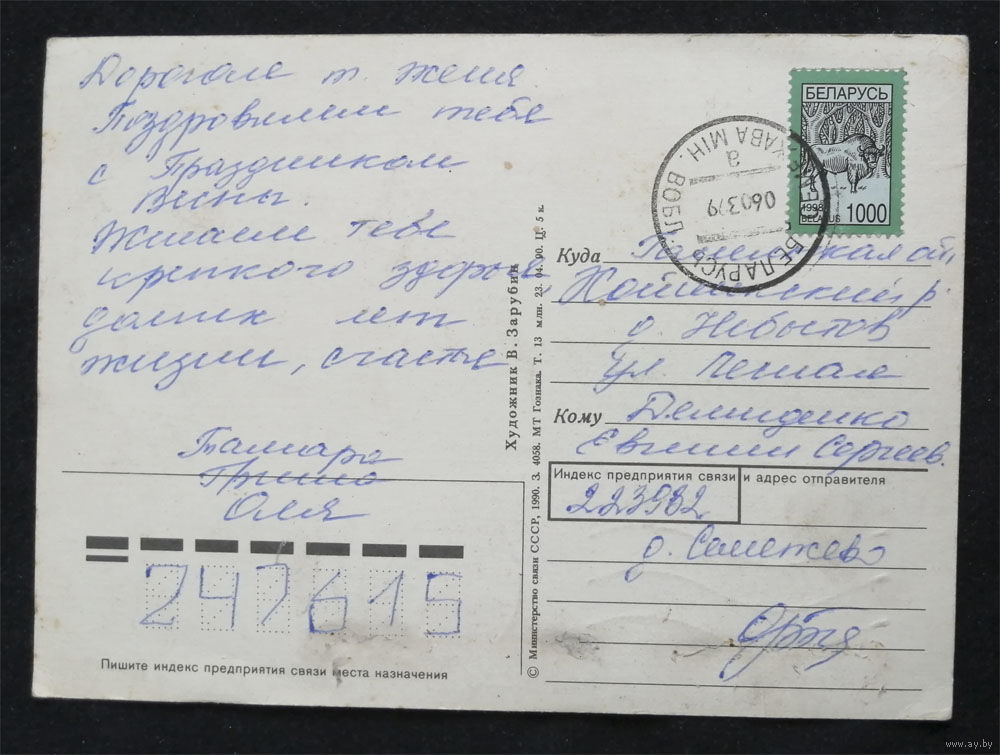 Дорогая т. Женя
Поздравляем тебя
с Праздником
Весны.
Желаем тебе
крепкого здоровья,
долгих лет
жизни, счастья
Тамара
Гриша
Оля
247615
Пишите индекс предприятия связи места назначения
© Министерство связи СССР, 1990. З. 4058. МТ Гознака. Т. 13 млн. 23. 04. 90. Ц. 5 к.
Художник В. Зарубин
БЕЛАРУСЬ
1998
BELARUS 1000
БЕЛАРУСЬ
КАВА МІН. ВОБЛ.
а
060399
Куда
Хойникский р.
д. Небытов
ул.
Кому Демиденко
Евгении Сергеев.
Индекс предприятия связи и адрес отправителя
223932
д. Семежево
www.ay.by